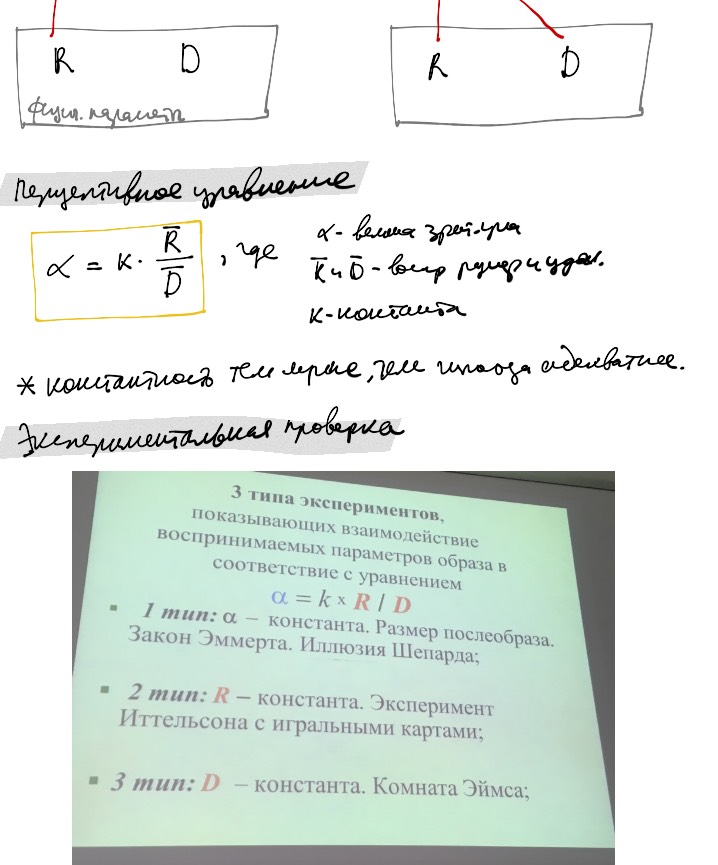 R D R D
Физич. параметры
Перцептивное уравнение
α = к · R̄ / D̄ , где
α - велич. зрит. угла
R̄ и D̄ - воспр размер и удал.
к - константа
* константность тем ярче, чем адекватнее.
Экспериментальная проверка
3 типа экспериментов,
показывающих взаимодействие
воспринимаемых параметров образа в
соответствие с уравнением
α = k × R / D
▪ 1 тип: α – константа. Размер послеобраза.
Закон Эммерта. Иллюзия Шепарда;
▪ 2 тип: R – константа. Эксперимент
Иттельсона с игральными картами;
▪ 3 тип: D – константа. Комната Эймса;